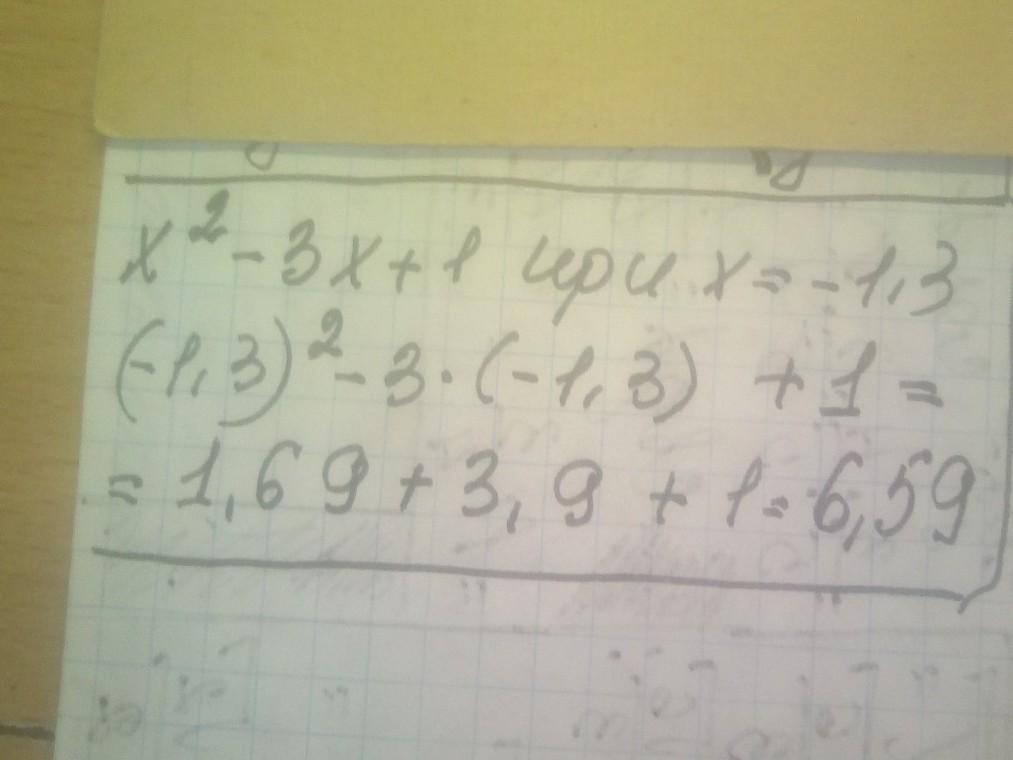 x² - 3x + 1 при x = -1,3
(-1,3)² - 3 · (-1,3) + 1 =
= 1,69 + 3,9 + 1 = 6,59